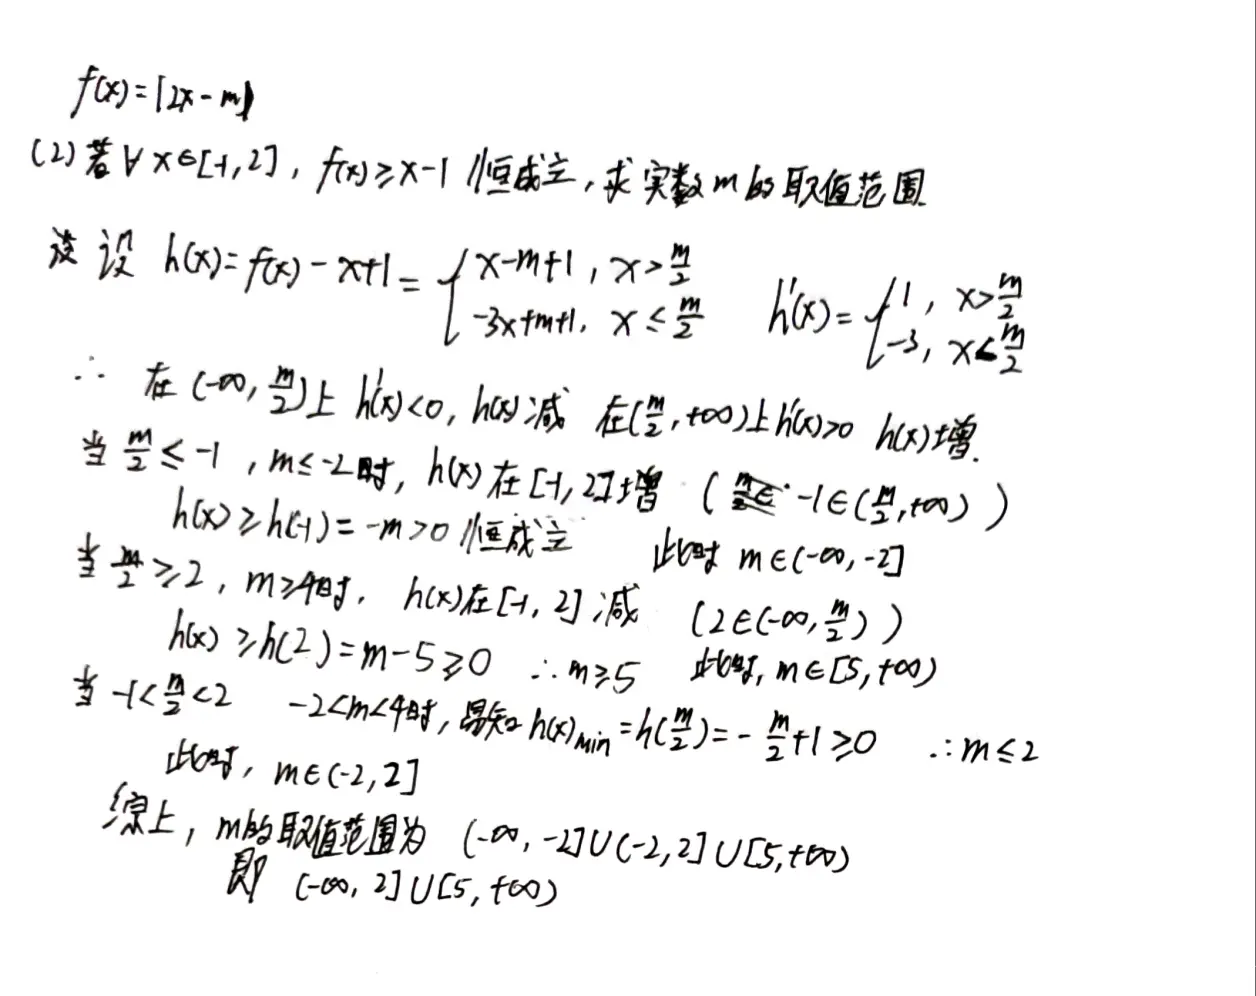 f(x)=|2x-m|
(2)若∀x∈[-1,2], f(x)≥x-1恒成立,求实数m的取值范围.
设 h(x)=f(x)-x+1={x-m+1, x>m/2; -3x+m+1, x≤m/2 h'(x)={1, x>m/2; -3, x<m/2
∴ 在(-∞, m/2)上h'(x)<0, h(x)减 在(m/2,+∞)上h'(x)>0 h(x)增.
当 m/2≤-1, m≤-2时, h(x)在[-1,2]增 (-1∈(m/2,+∞))
h(x)≥h(-1)=-m>0恒成立 此时 m∈(-∞,-2]
当 m/2≥2, m≥4时, h(x)在[-1,2]减 (2∈(-∞,m/2))
h(x)≥h(2)=m-5≥0 ∴m≥5 此时, m∈[5,+∞)
当 -1<m/2<2 -2<m<4时,易知h(x)min=h(m/2)=-m/2+1≥0 ∴m≤2
此时, m∈(-2,2]
综上, m的取值范围为 (-∞,-2]∪(-2,2]∪[5,+∞)
即 (-∞,2]∪[5,+∞)